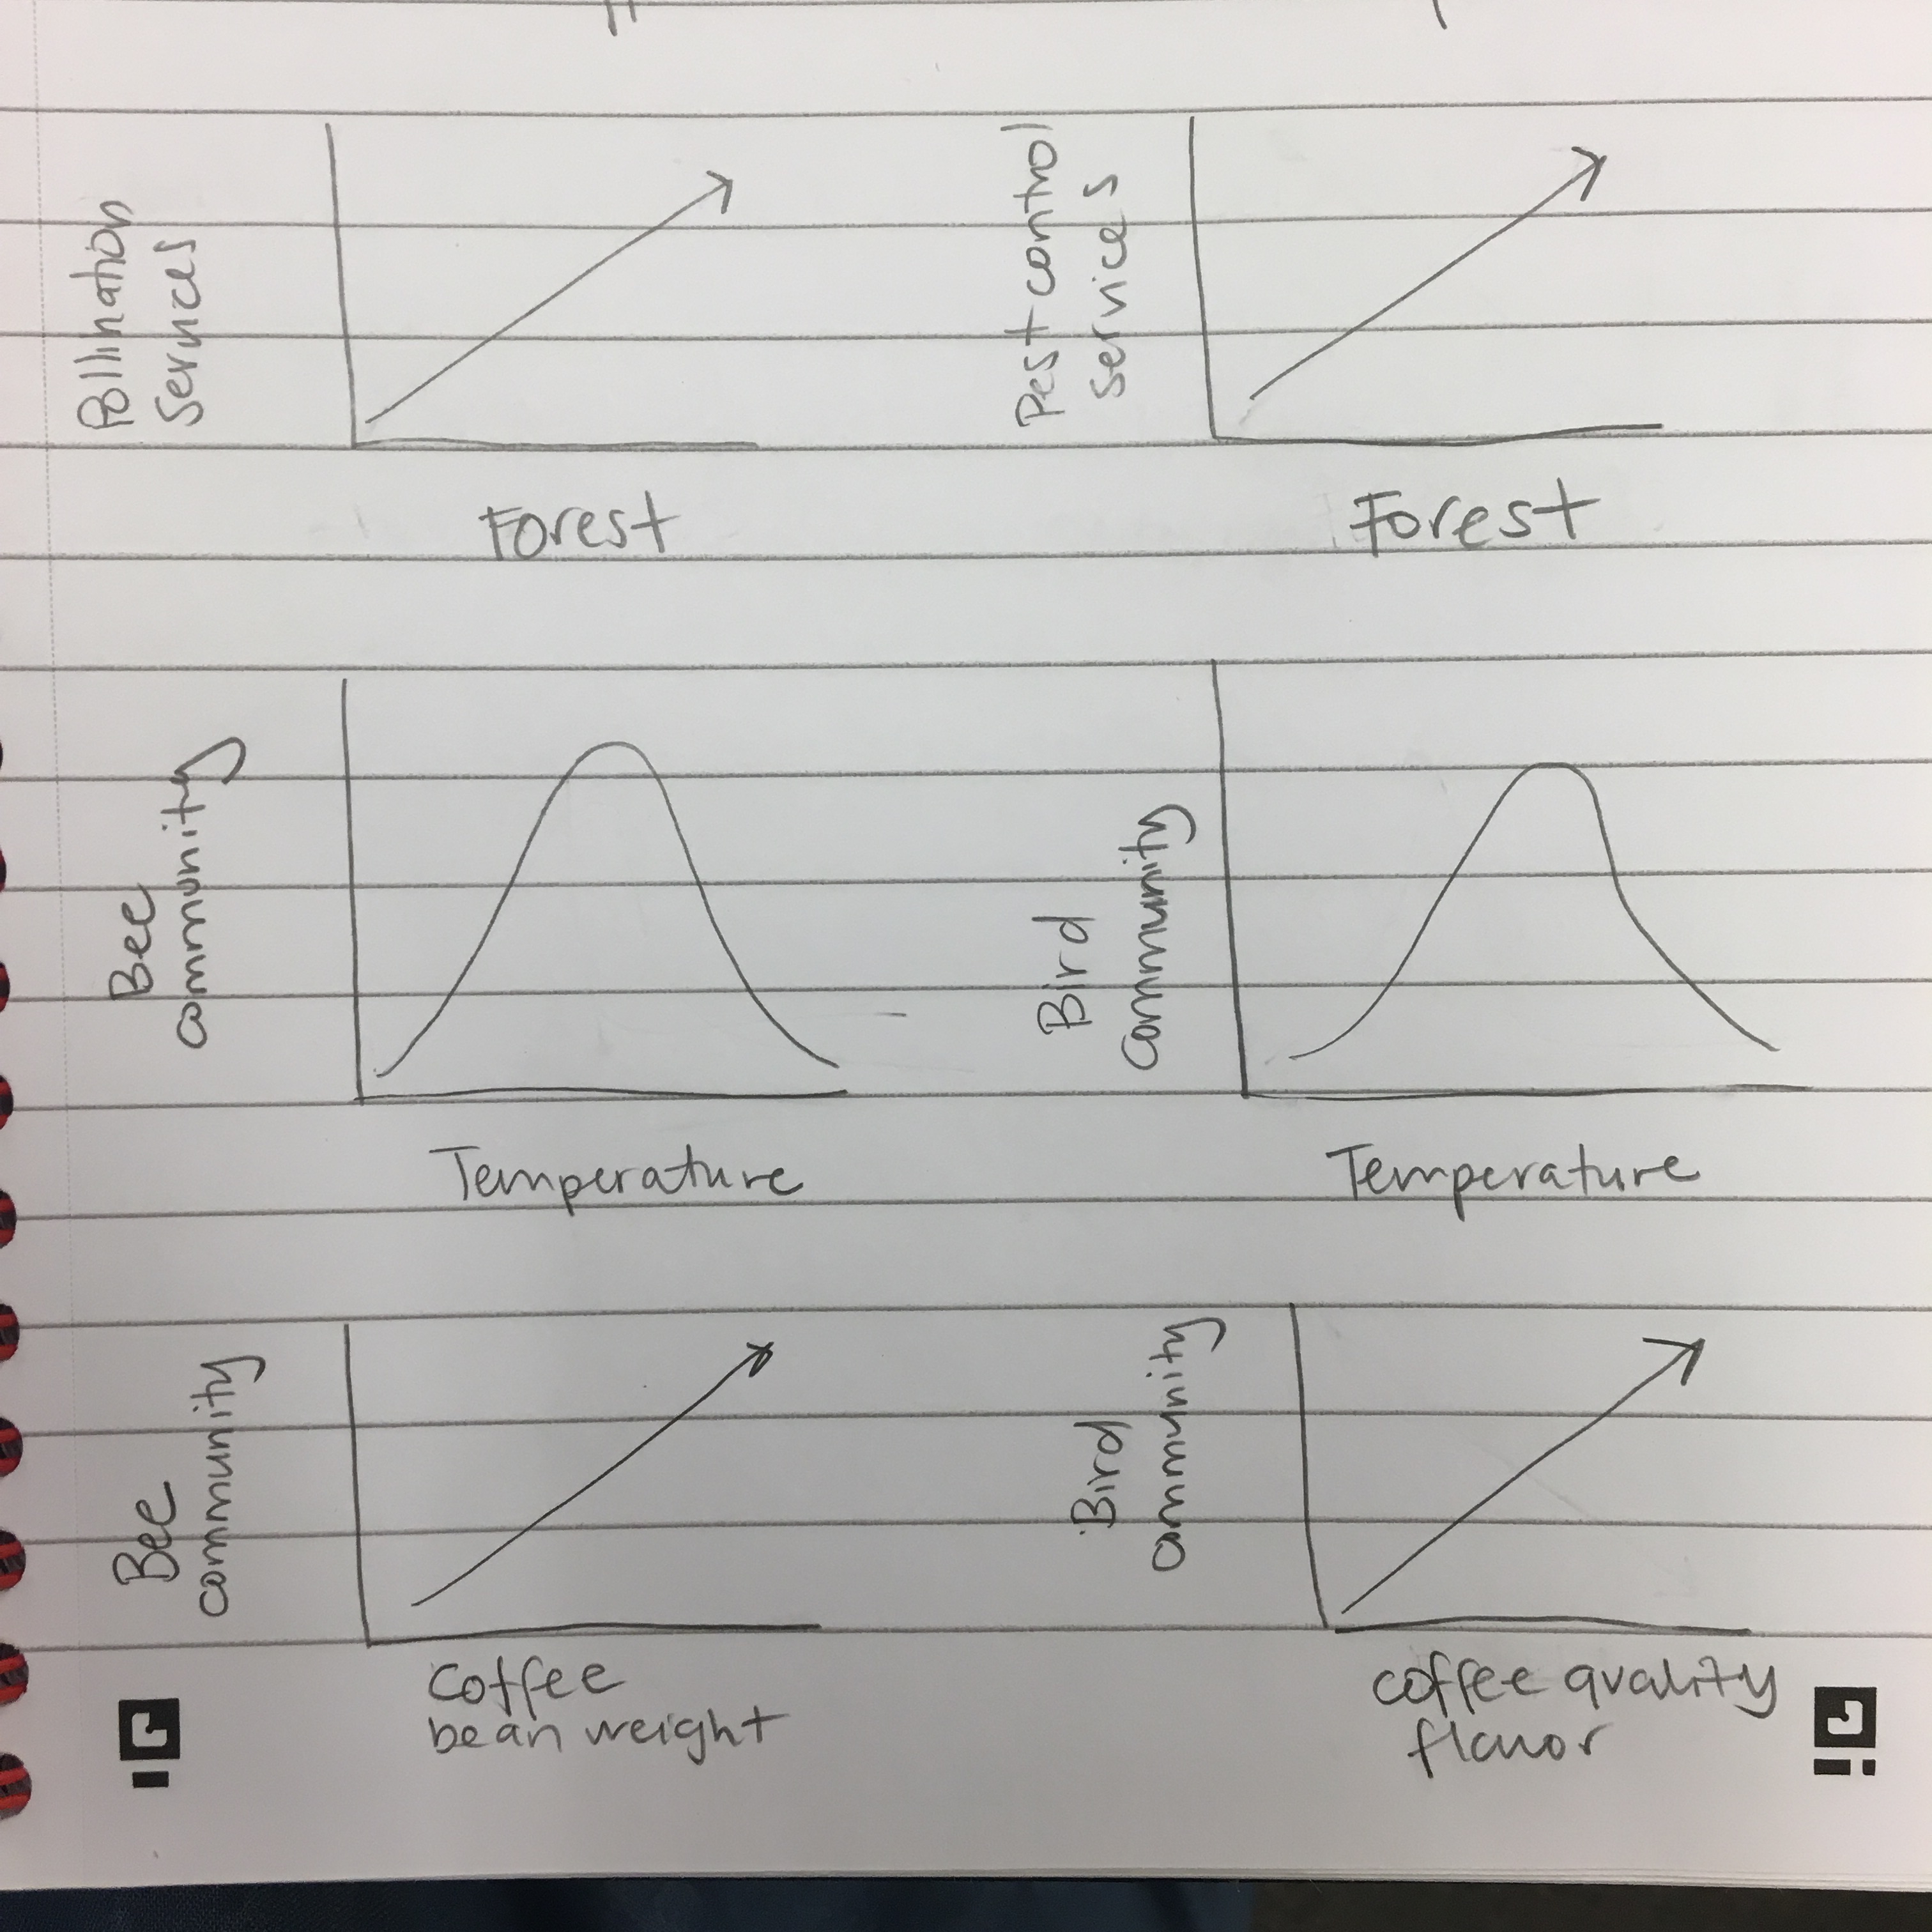 Pollination
Services
Forest
Pest control
services
Forest
Bee
community
Temperature
Bird
community
Temperature
Bee
community
Coffee
bean weight
Bird
community
coffee quality
flavor